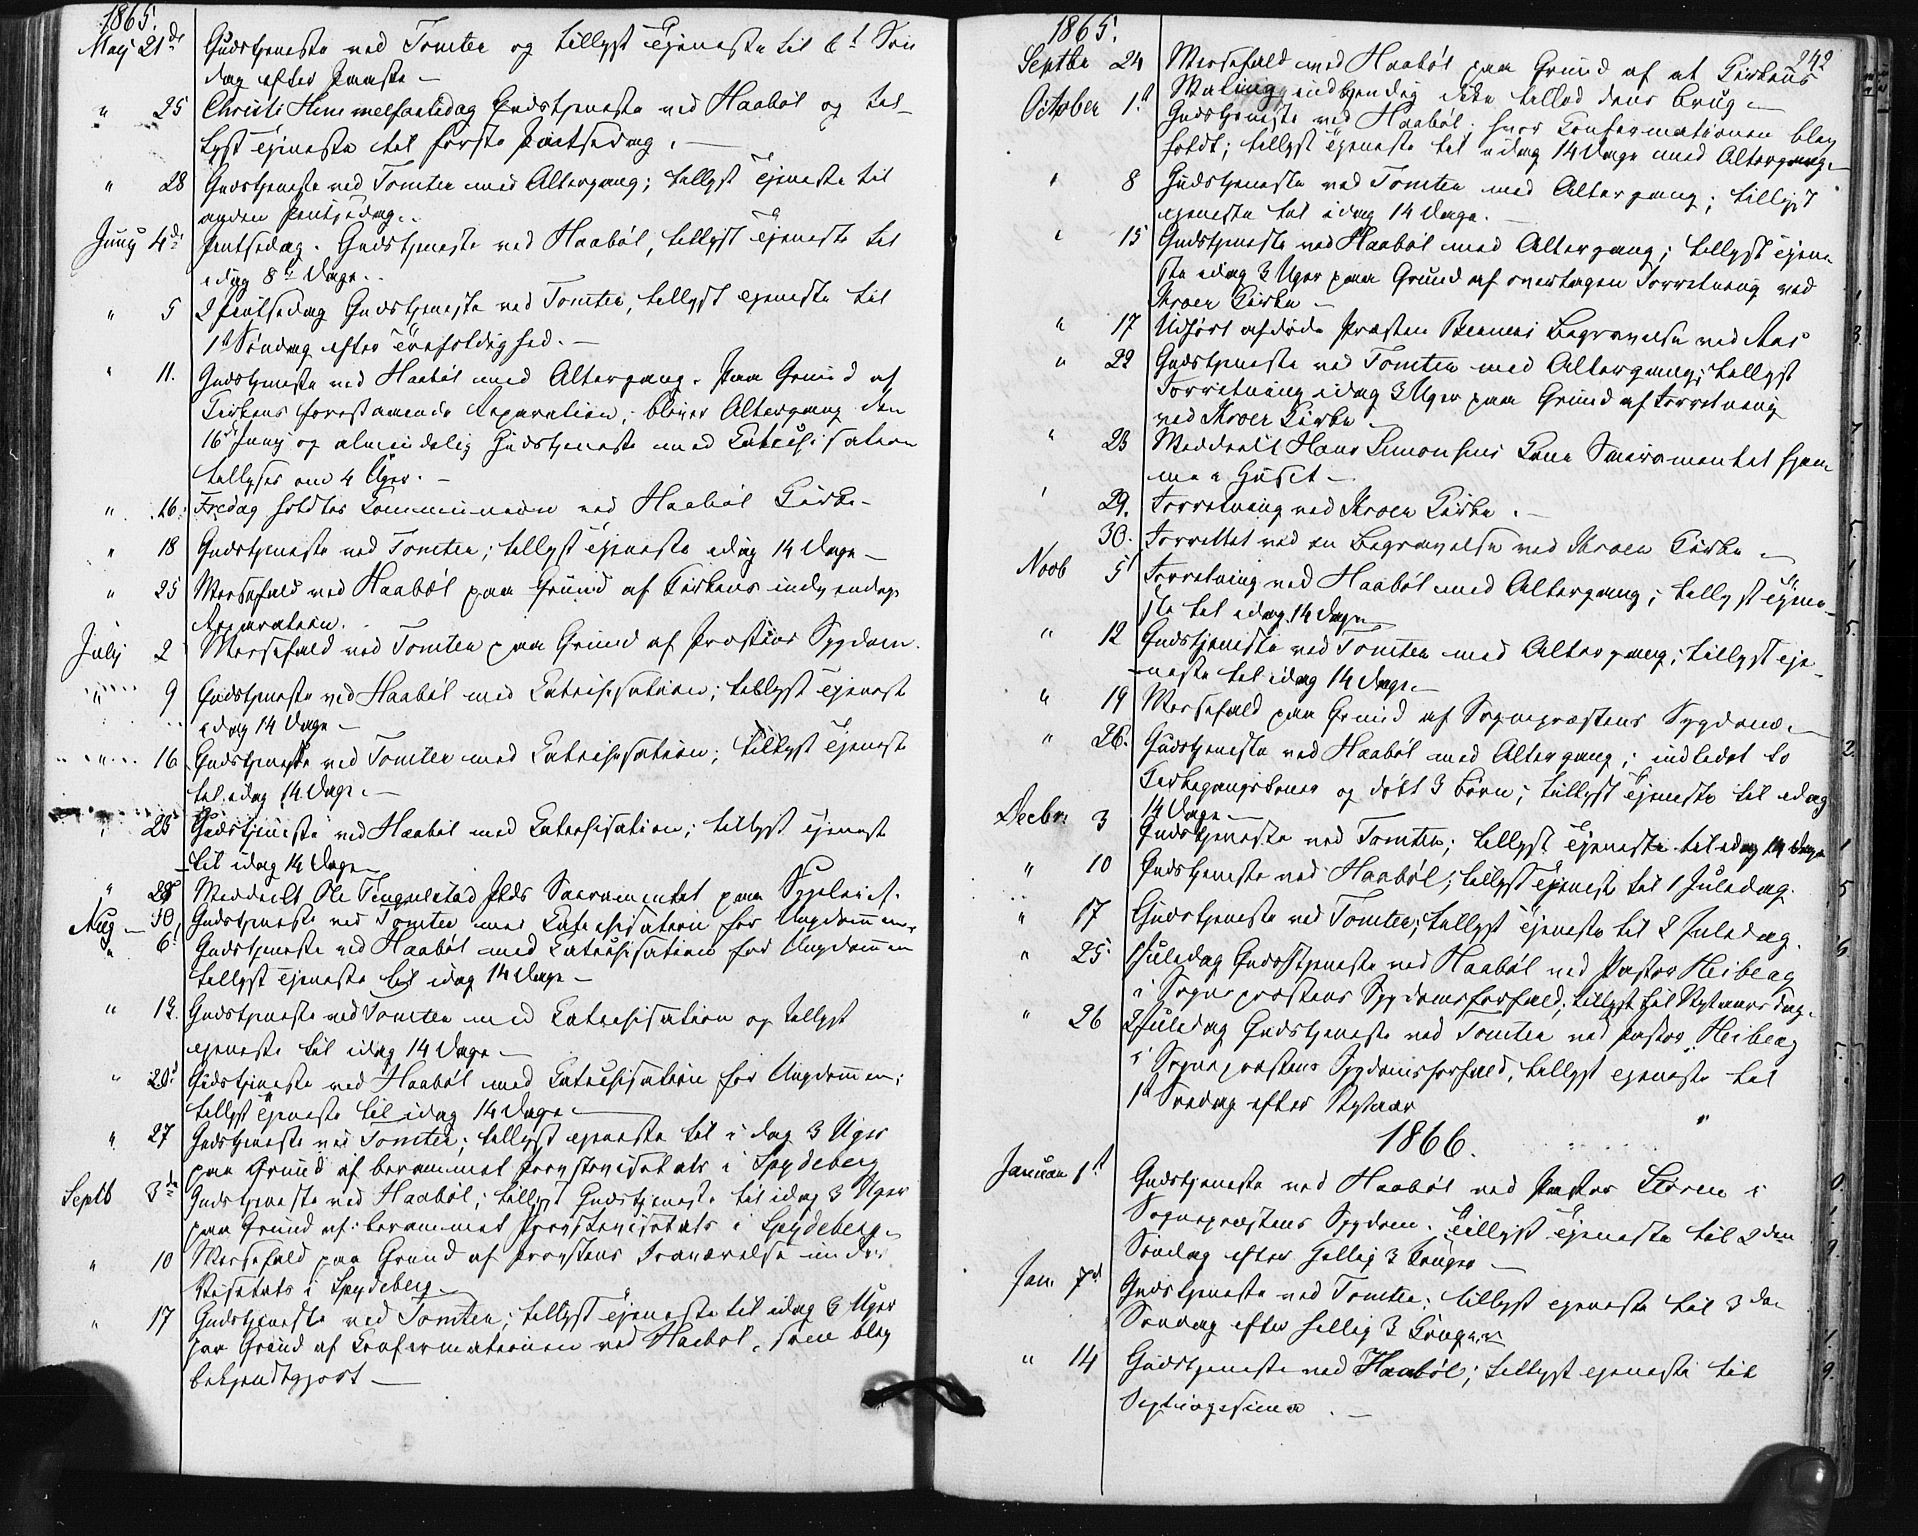 1865.
May 21de Gudstjeneste ved Tomter og tillyst Tjeneste til 6t Søn
dag efter Paaske —
" 25 Christi Himmelfartsdag Gudstjeneste ved Haabøl og til-
lyst Tjeneste til første Pintsedag. —
" 28 Gudstjeneste ved Tomter med Altergang; tillyst Tjeneste til
anden Pintsedag.
Juny 4de Pintsedag. Gudstjeneste ved Haabøl, tillyst Tjeneste til
idag 8te Dage.
" 5 2 Pintsedag Gudstjeneste ved Tomter, tillyst Tjeneste til
1st Søndag efter Trefoldighed. —
" 11. Gudstjeneste ved Haabøl med Altergang. Paa Grund af
Kirkens forestaaende Reparation, bliver Altergang den
16de Juny og almindelig Gudstjeneste med Catechisation
tillyses om 4 Uger. —
" 16. Fredag holdtes Communion ved Haabøl Kirke —
" 18 Gudstjeneste ved Tomter; tillyst Tjeneste idag 14 Dage —
" 25 Messefald ved Haabøl paa Grund af Kirkens indvendige
Reparation.
July 2 Messefald ved Tomter paa Grund af Præstens Sygdom.
" 9 Gudstjeneste ved Haabøl med Catechisation; tillyst Tjeneste
idag 14 Dage —
" 16 Gudstjeneste ved Tomter med Catechisation; tillyst Tjeneste
til idag 14 Dage. —
" 23 Gudstjeneste ved Haabøl med Catechisation; tillyst Tjeneste
til idag 14 Dage —
" 28 Meddeelt Ole Sacramentet paa Sygeleiet.
" 30 Gudstjeneste ved Tomter med Catechisation for Ungdommen.
Aug — 6t Gudstjeneste ved Haabøl med Catechisation for Ungdommen
tillyst Tjeneste til idag 14 Dage —
" 13. Gudstjeneste ved Tomter med Catechisation og tillyst
Tjeneste til idag 14 Dage —
" 20d Gudstjeneste ved Haabøl med Catechisation for Ungdommen;
tillyst Tjeneste til idag 14 Dage —
" 27 Gudstjeneste ved Tomter; tillyst Tjeneste til i dag 3 Uger
paa Grund af berammet Provstevisitats i Spydeberg
Septb 3de Gudstjeneste ved Haabøl; tillyst Gudstjeneste til idag 3 Uger
paa Grund af berammet Provstevisitats i Spydeberg.
" 10 Messefald paa Grund af Provstens Fraværelse under
Visitats i Spydeberg —
" 17 Gudstjeneste ved Tomter; tillyst Tjeneste til idag 3 Uger
paa Grund af Confirmationen ved Haabøl, som blev
bekjendtgjort —
1865.
242
Septbr 24 Messefald ved Haabøl paa Grund af at Kirkens
Maling indvendig ikke tillod dens Brug —
October 1st Gudstjeneste ved Haabøl, hvor Confirmationen blev
holdt; tillyst Tjeneste til idag 14 Dage med Altergang —
" 8 Gudstjeneste ved Tomter med Altergang; tillyst
Tjeneste til idag 14 Dage. —
" 15 Gudstjeneste ved Haabøl med Altergang; tillyst Tjene-
ste idag 3 Uger paa Grund af overtagen Forretning ved
Kroer Kirke —
" 17 Udført afdøde Præsten Begravelse ved Aas
" 22 Gudstjeneste ved Tomter med Altergang; tillyst
Forretning idag 3 Uger paa Grund af Forretning
ved Kroer Kirke —
" 23 Meddeelt Hans Simonsens Kone Sacramentet hjem-
me i Huset —
" 29. Forretning ved Kroer Kirke. —
30. Forrettet ved en Begravelse ved Kroer Kirke —
Novb 5t Forretning ved Haabøl med Altergang; tillyst Tjene-
ste til idag 14 Dage
" 12 Gudstjeneste ved Tomter med Altergang; tillyst Tje-
neste til idag 14 Dage —
" 19 Messefald paa Grund af Sognepræstens Sygdom. —
" 26. Gudstjeneste ved Haabøl med Altergang; indledet to
Kirkegangskoner og døbt 3 Børn; tillyst Tjeneste til idag
14 Dage —
Decbr 3 Gudstjeneste ved Tomter; tillyst Tjeneste til idag 14 Dage
" 10 Gudstjeneste ved Haabøl; tillyst Tjeneste til 1 Juledag.
" 17 Gudstjeneste ved Tomter; tillyst Tjeneste til 2 Juledag.
" 25. 1 Juledag Gudstjeneste ved Haabøl ved Pastor Heiberg
i Sognepræstens Sygdomsforfald; tillyst til Nytaarsdag.
" 26 2 Juledag Gudstjeneste ved Tomter ved Pastor Heiberg
i Sognepræstens Sygdomsforfald, tillyst Tjeneste til
1st Søndag efter Nytaar
1866.
Januar 1st Gudstjeneste ved Haabøl ved Pastor i
Sognepræstens Sygdom. Tillyst Tjeneste til 2den
Søndag efter Hellig 3 Konger —
Jan 7d Gudstjeneste ved Tomter; tillyst Tjeneste til 3de
Søndag efter Hellig 3 Konger
" 14 Gudstjeneste ved Haabøl; tillyst Tjeneste til
Septuagesima. —